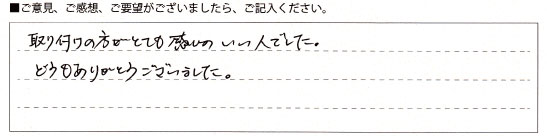 ■ご意見、ご感想、ご要望がございましたら、ご記入ください。
取り付けの方がとても感じの いい人でした。
どうもありがとうございました。